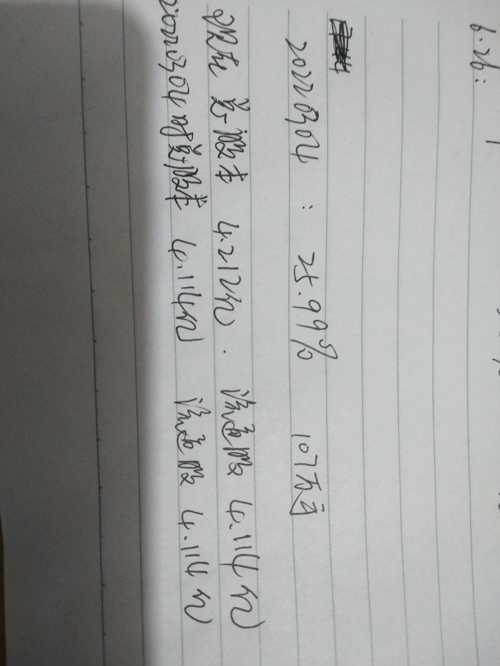 6.26:
20220304 : 25.99% 107万手
现在 总股本 4.212亿. 流通股 4.114亿
20220304时总股本 4.114亿 流通股 4.114亿